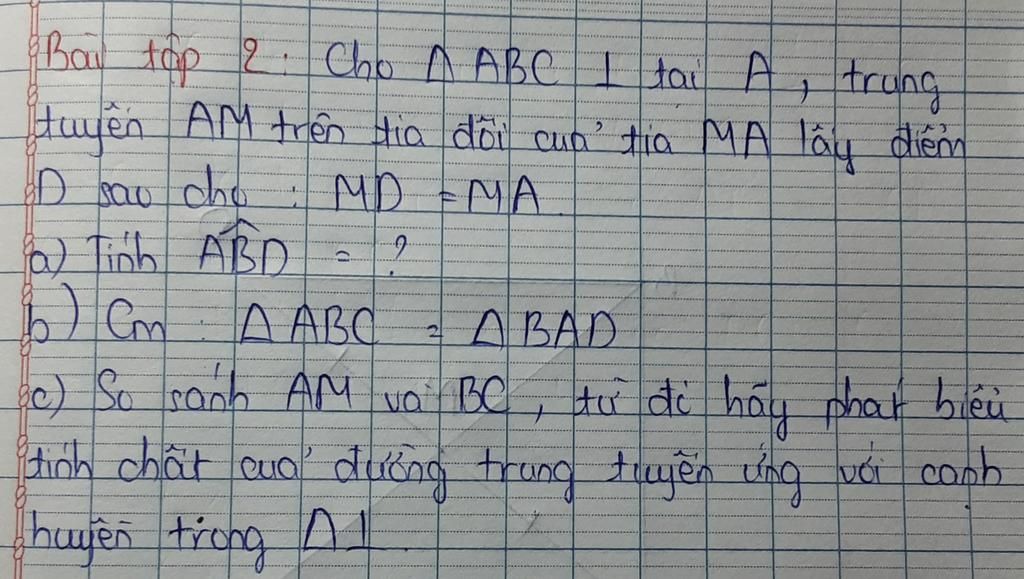 Bài tập 2: Cho Δ ABC ⊥ tại A, trung
tuyến AM trên tia đối của tia MA lấy điểm
D sao cho : MD = MA.
a) Tính \widehat{ABD} = ?
b) Cm : Δ ABC = Δ BAD
c) So sánh AM và BC, từ đó hãy phát biểu
tính chất của đường trung tuyến ứng với cạnh
huyền trong Δ⊥.